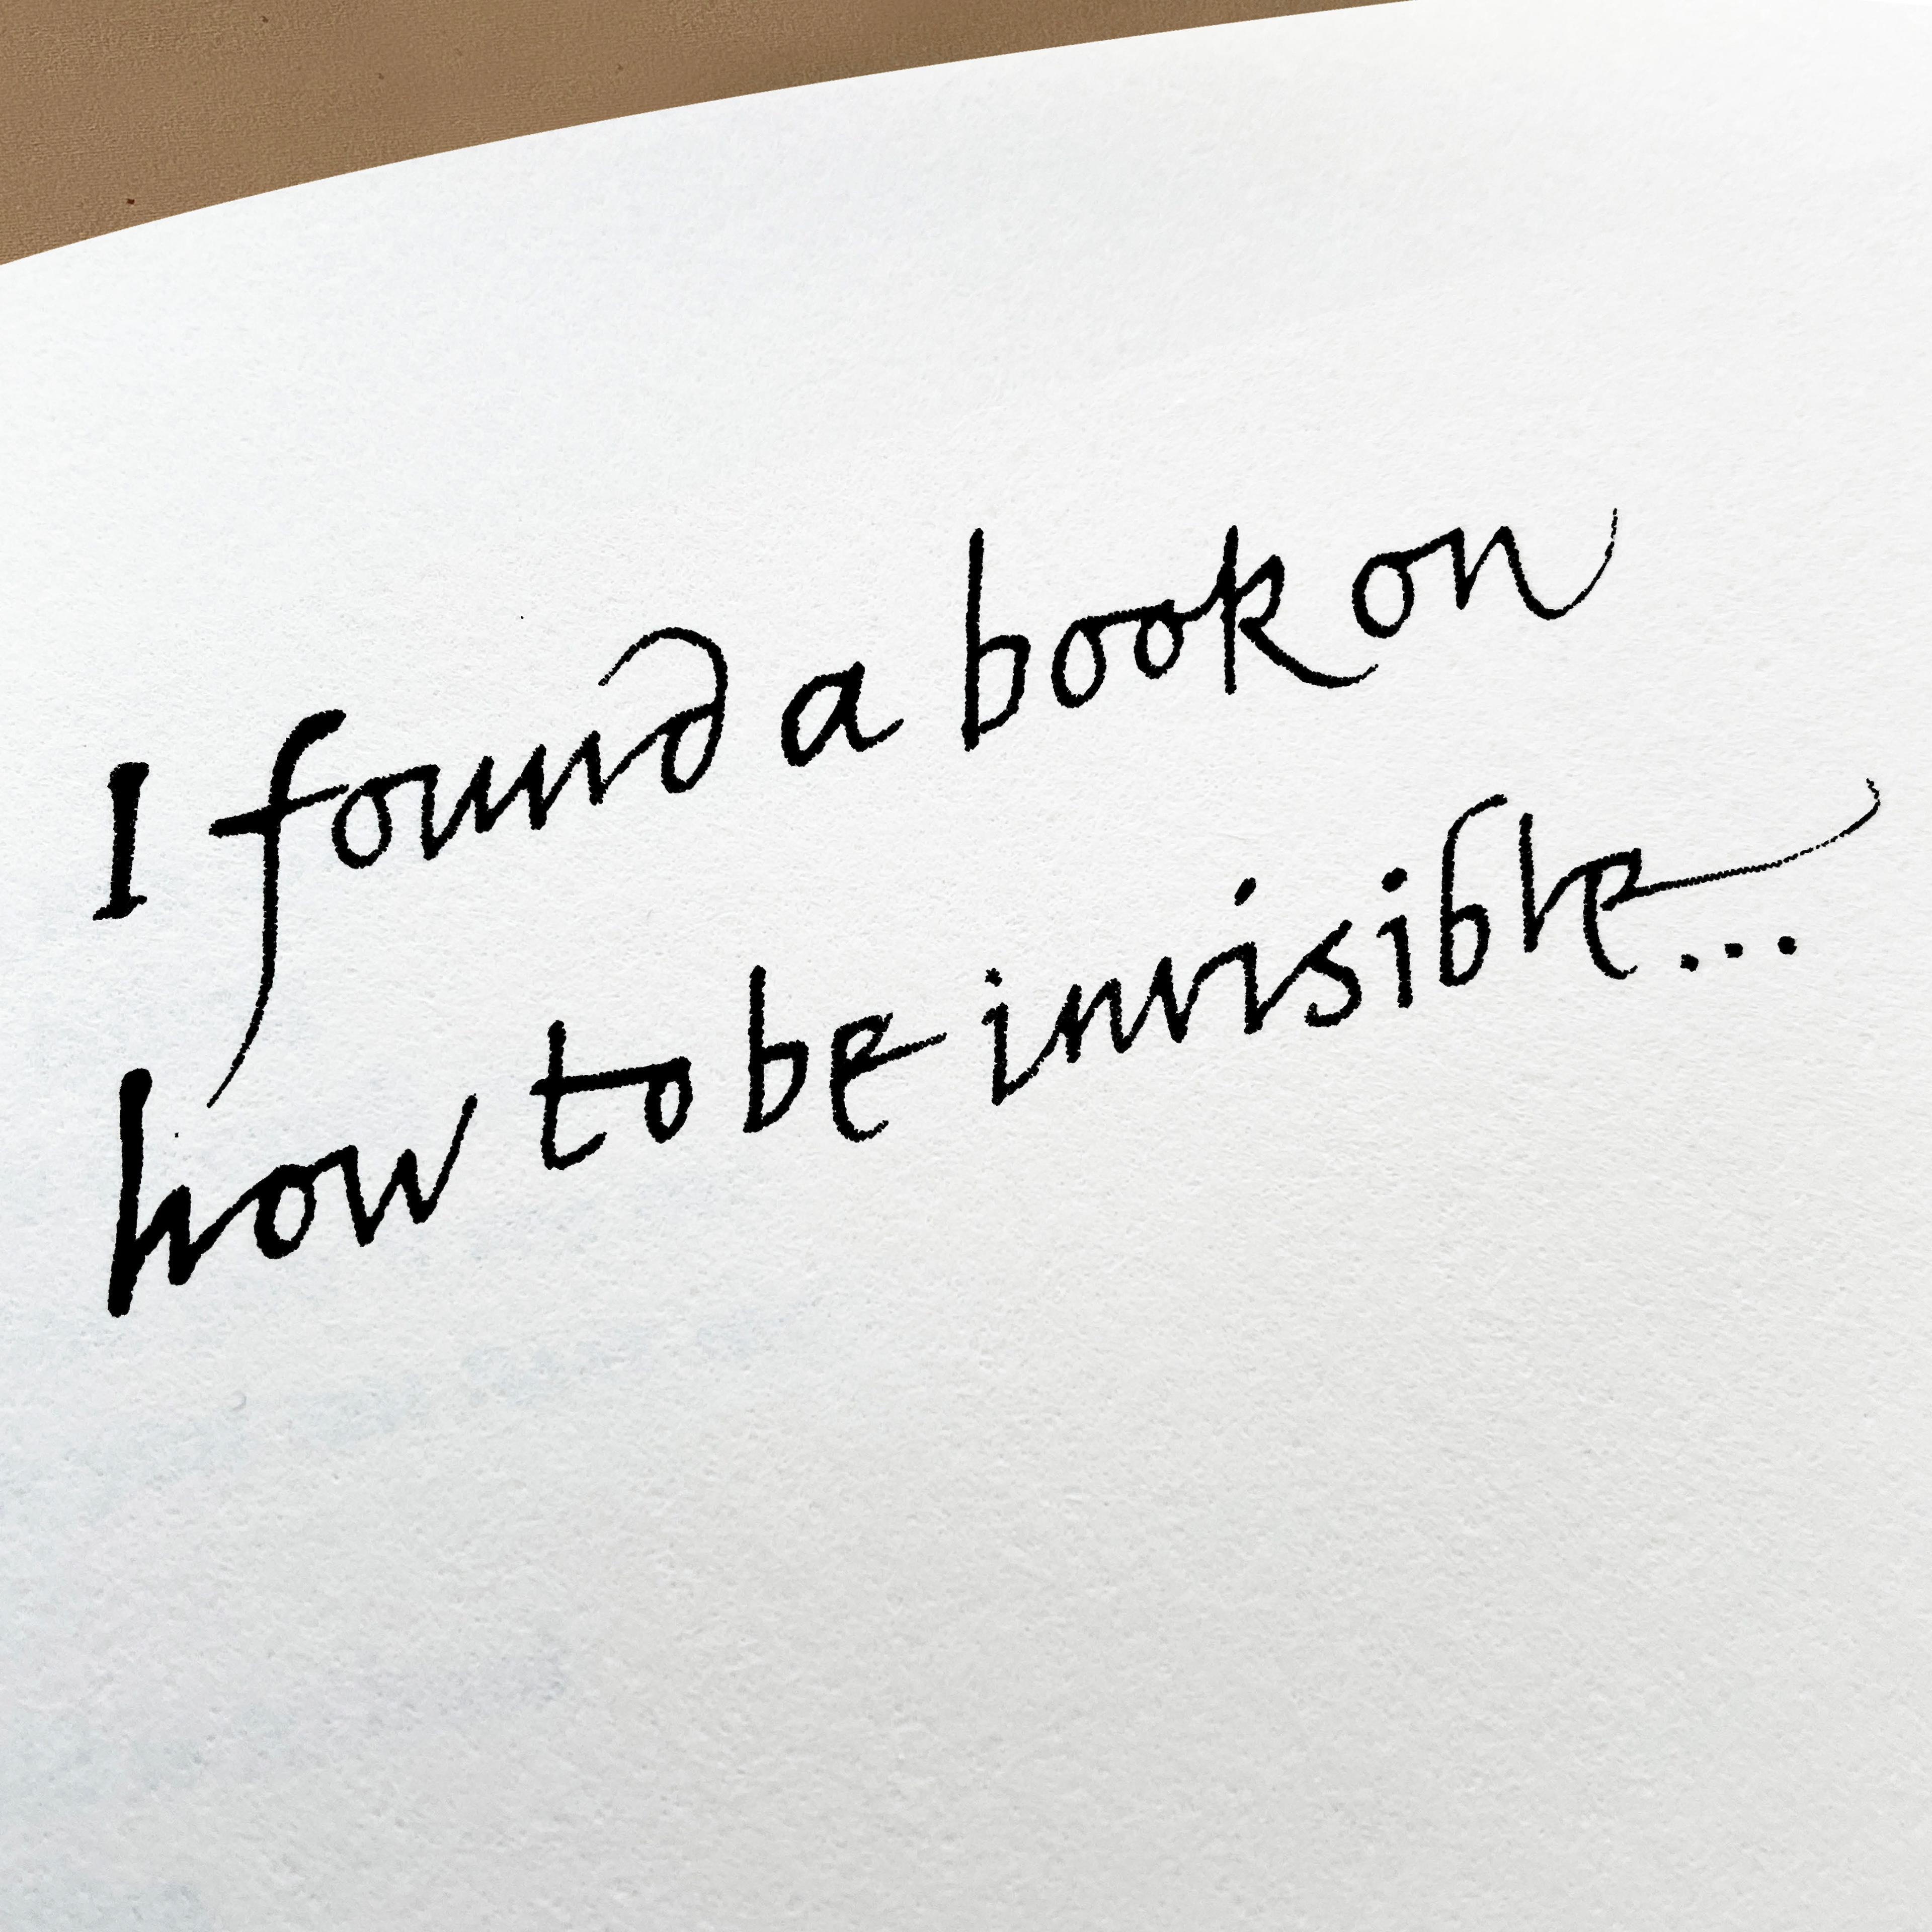 I found a book on
how to be invisible...